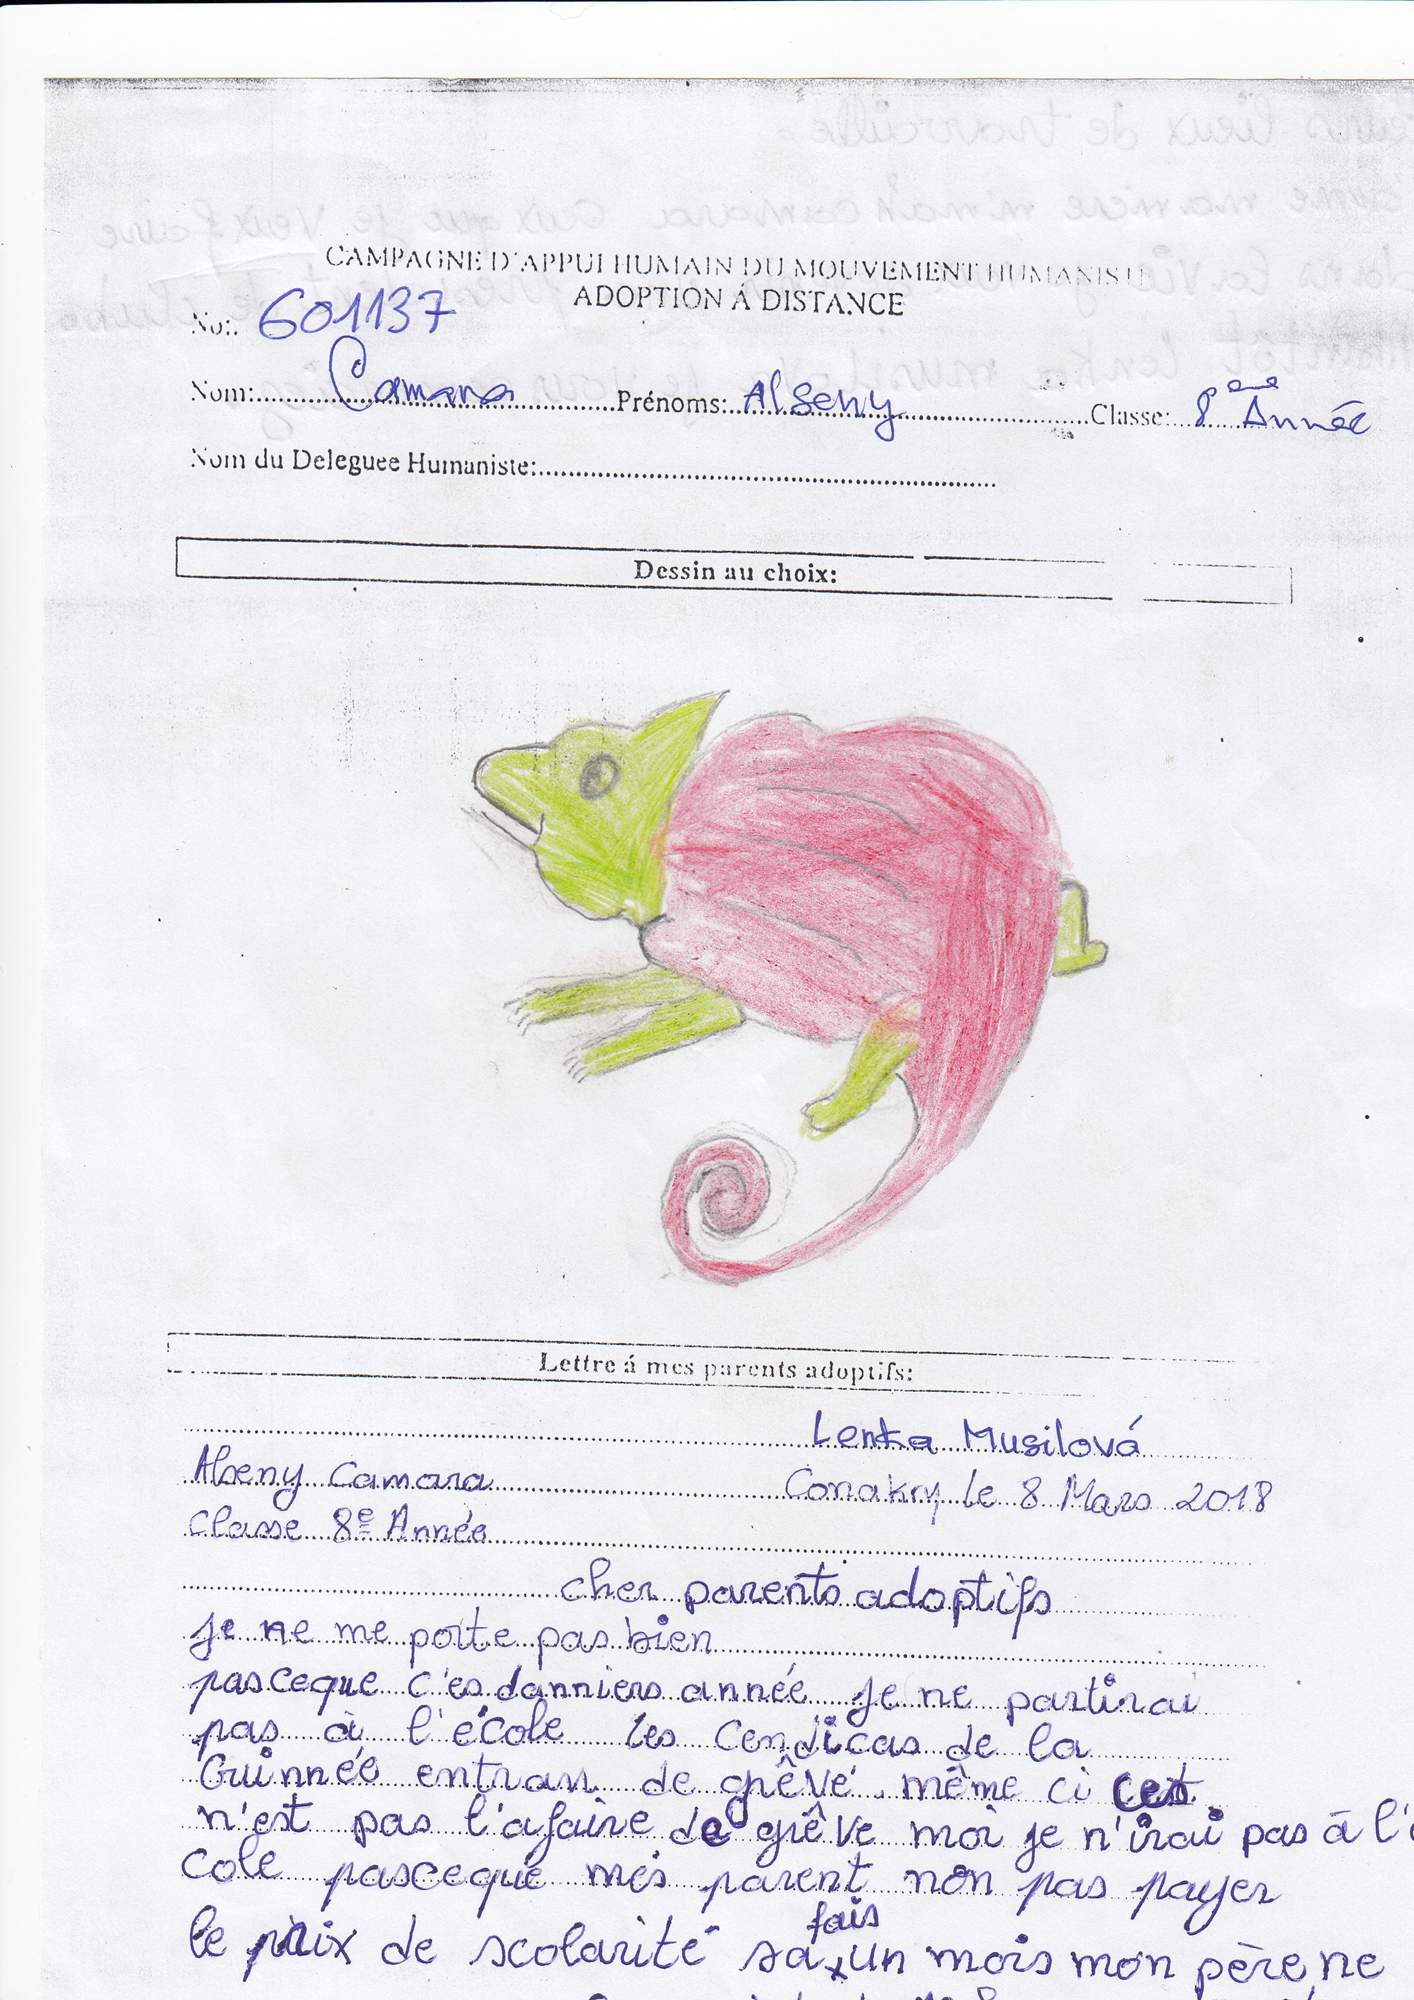 CAMPAGNE D'APPUI HUMAIN DU MOUVEMENT HUMANISTE
ADOPTION Á DISTANCE
No: 601137
Nom: Camara Prénoms: Alseny Classe: 8ème Année
Nom du Deleguee Humaniste:
Dessin au choix:
Lettre á mes parents adoptifs:
Lenka Musilová
Alseny Camara Conakry le 8 Mars 2018
Classe 8e Année
cher parents adoptifs
je ne me porte pas bien
pasceque c'es danniers année je ne partirai
pas à l'école les Cendicas de la
Guinnée entran de grêve même ci cest
n'est pas l'afaire de grêve moi je n'irai pas à l'é
cole pasceque mes parent non pas payer
le prix de scolarité sa fais un mois mon père ne